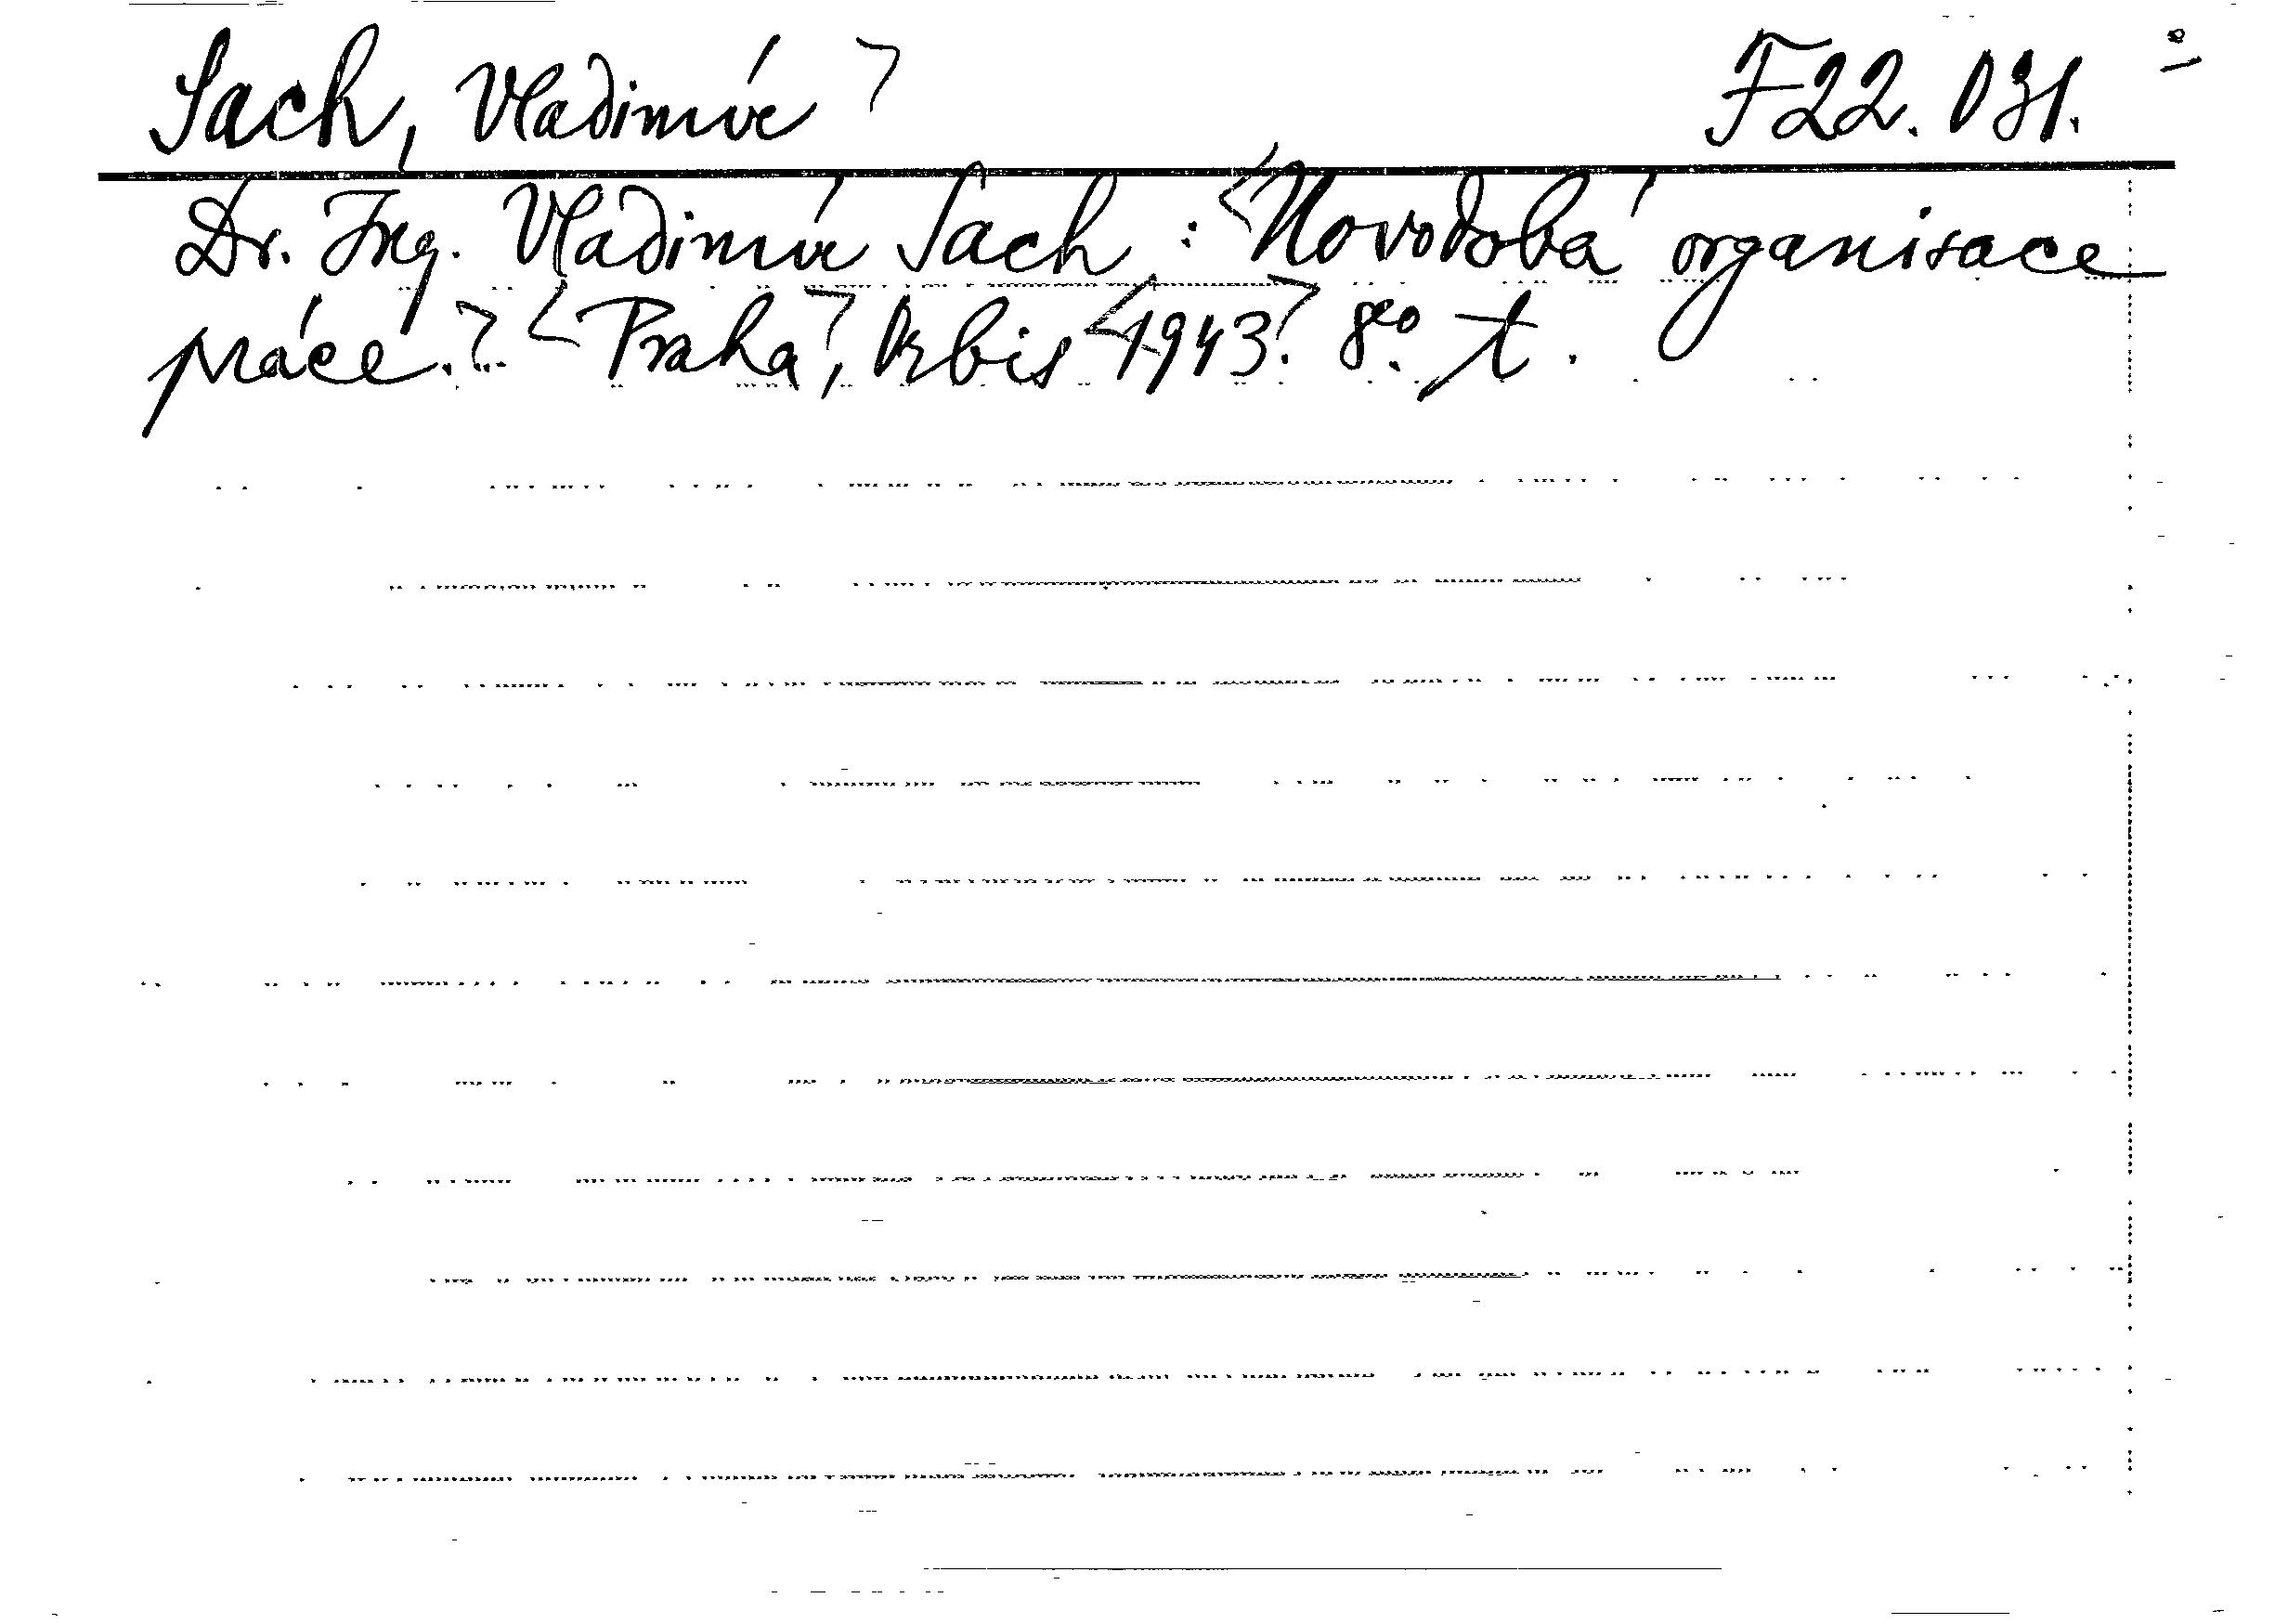 Sach, Vladimír F22.031.
Dr. Ing. Vladimír Sach: Novodobá organisace
práce. Praha, Orbis 1943. 8º. t.